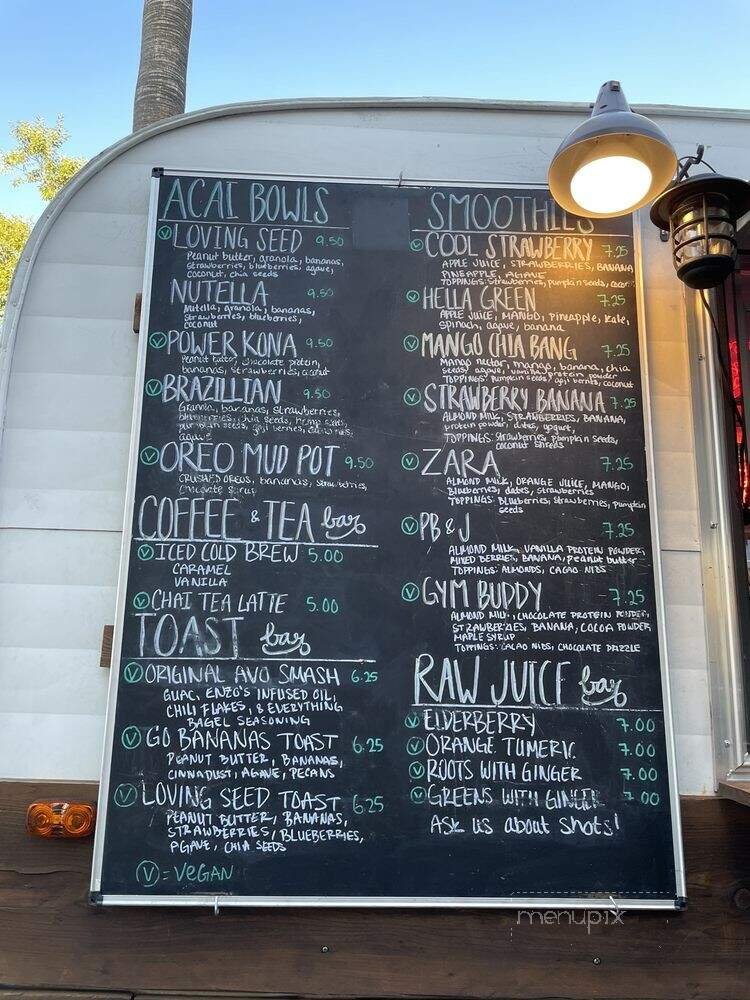 ACAI BOWLS
V LOVING SEED 9.50
Peanut butter, granola, bananas,
strawberries, blueberries, agave,
coconut, chia seeds
NUTELLA 9.50
Nutella, granola, bananas,
Strawberries, blueberries,
coconut
V POWER KONA 9.50
Peanut butter, chocolate protein,
bananas, strawberries, coconut
V BRAZILLIAN 9.50
Granola, bananas, strawberries,
blueberries, chia seeds, hemp seeds,
pumpkin seeds, goji berries,
agave
V OREO MUD POT 9.50
CRUSHED OREOS, bananas, strawberries,
chocolate syrup
COFFEE & TEA bar
V ICED COLD BREW 5.00
CARAMEL
VANILLA
V CHAI TEA LATTE 5.00
TOAST bar
V ORIGINAL AVO SMASH 6.25
GUAC, ENZO'S INFUSED OIL,
CHILI FLAKES, & EVERYTHING
BAGEL SEASONING
V GO BANANAS TOAST 6.25
PEANUT BUTTER, BANANAS,
CINNADUST, AGAVE, PECANS
V LOVING SEED TOAST 6.25
PEANUT BUTTER, BANANAS,
STRAWBERRIES, BLUEBERRIES,
AGAVE, CHIA SEEDS
V = VEGAN
SMOOTHIES
V COOL STRAWBERRY 7.25
APPLE JUICE, STRAWBERRIES, BANANA
PINEAPPLE, AGAVE
TOPPINGS: Strawberries, pumpkin seeds,
V HELLA GREEN 7.25
APPLE JUICE, MANGO, pineapple, kale,
spinach, agave, banana
V MANGO CHIA BANG 7.25
Mango nectar, mango, banana, chia
seeds, agave, vanilla protein powder
TOPPINGS: pumpkin seeds, goji berries, coconut
V STRAWBERRY BANANA 7.25
ALMOND MILK, STRAWBERRIES, BANANA,
protein powder, dates, yogurt,
TOPPINGS: Strawberries, pumpkin seeds,
coconut shreds
V ZARA 7.25
ALMOND MILK, ORANGE JUICE, MANGO,
Blueberries, dates, strawberries
TOPPINGS: Blueberries, strawberries, pumpkin
seeds
V PB & J 7.25
ALMOND MILK, VANILLA PROTEIN POWDER,
MIXED BERRIES, BANANA, peanut butter
TOPPINGS: ALMONDS, CACAO NIBS
V GYM BUDDY 7.25
ALMOND MILK, CHOCOLATE PROTEIN POWDER,
STRAWBERRIES, BANANA, COCOA POWDER,
MAPLE SYRUP
TOPPINGS: CACAO NIBS, CHOCOLATE DRIZZLE
RAW JUICE bar
V ELDERBERRY 7.00
V ORANGE TUMERIC 7.00
V ROOTS WITH GINGER 7.00
V GREENS WITH GINGER 7.00
Ask us about shots!
menupix